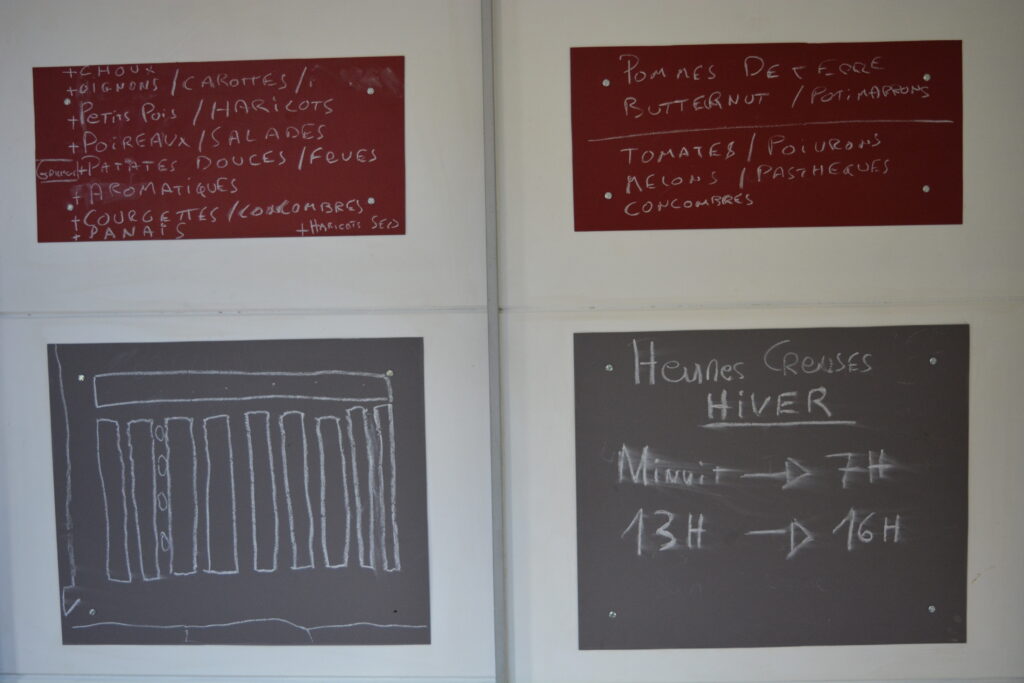 +CHOUX
+OIGNONS / CAROTTES /
+PETITS POIS / HARICOTS
+POIREAUX / SALADES
+PATATES DOUCES / FEVES
+ AROMATIQUES
+COURGETTES / CONCOMBRES
+PANAIS +HARICOTS SECS
POMMES DE TERRE
BUTTERNUT / POTIMARRONS
TOMATES / POIVRONS
MELONS / PASTHEQUES
CONCOMBRES
Heures Creuses
HiVER
Minuit → 7H
13H → 16H